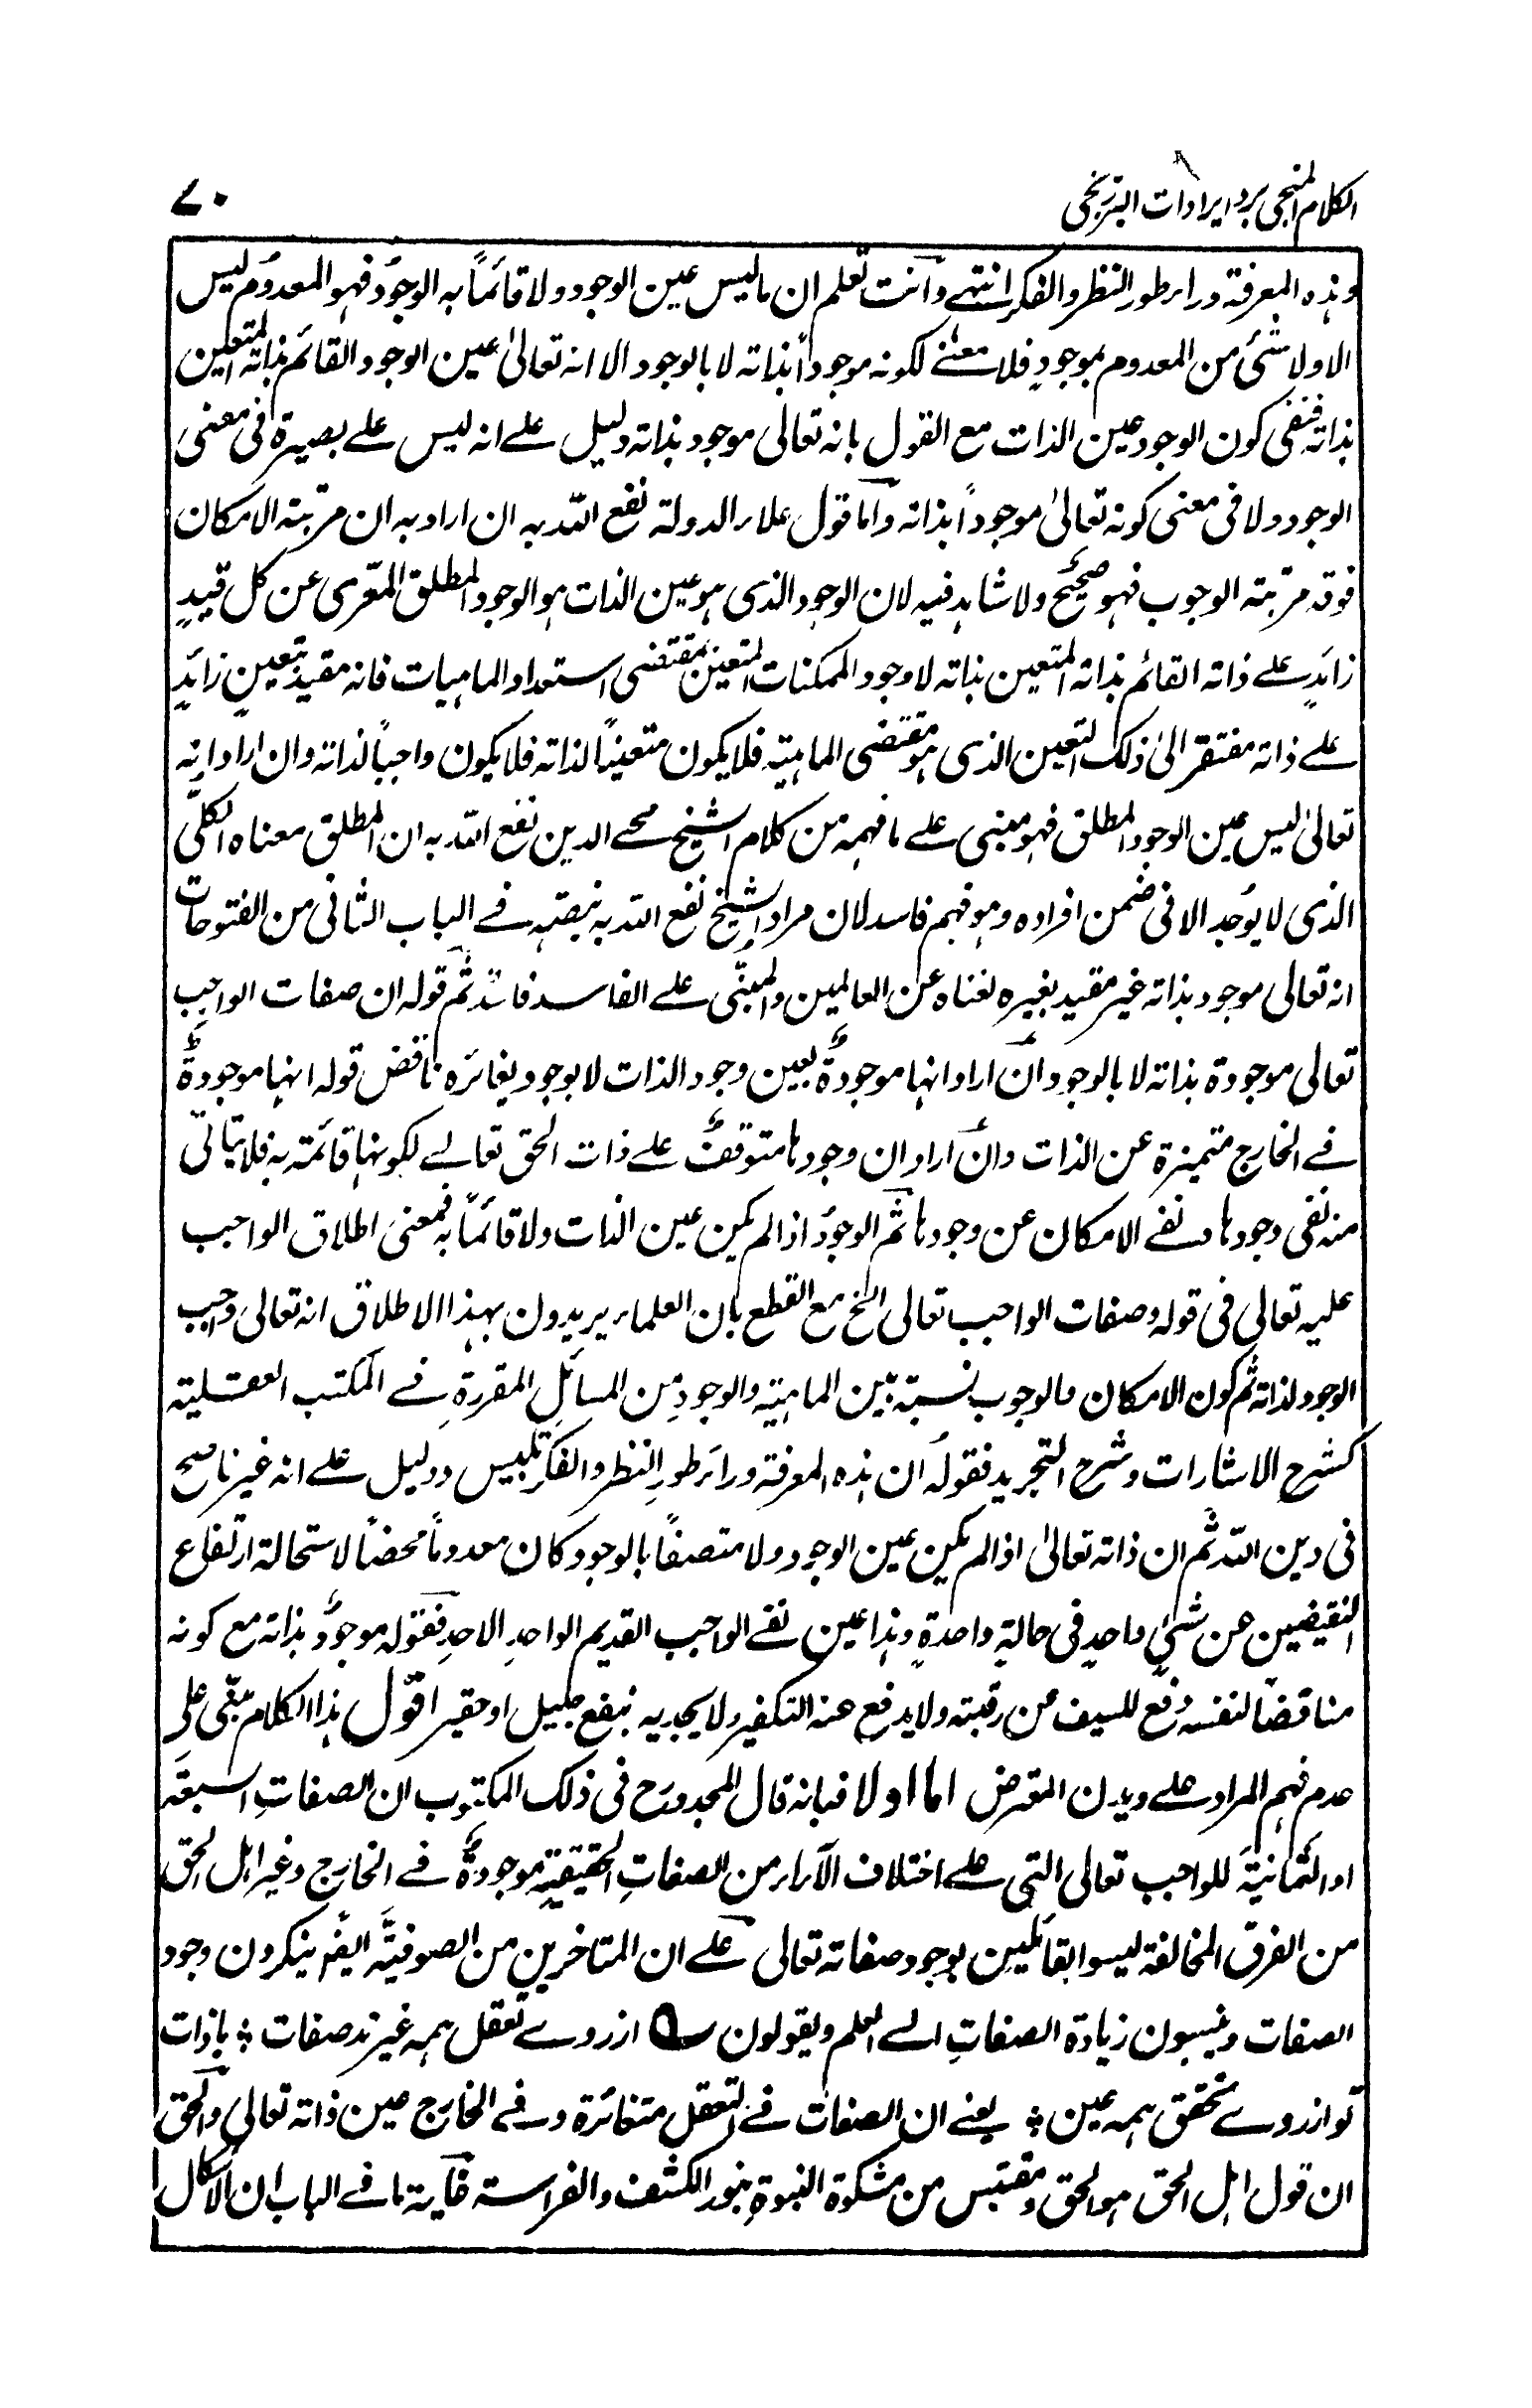 الكلام المنجي برد ايرادات البرزنجي
٧٠
وهذه المعرفة وراء طور النظر والفكر انتهى وانت تعلم ان ما ليس عين الوجود ولا قائماً به الوجود فهو المعدوم ليس
الا ولا شئ من المعدوم بموجودٍ فلا معنى لكونه موجوداً بذاته لا بالوجود الا انه تعالىٰ عين الوجود القائم بذاته المتعين
بذاته فنفى كون الوجود عين الذات مع القول بانه تعالى موجود بذاته دليل على انه ليس على بصيرة فى معنى
الوجود ولا فى معنى كونه تعالىٰ موجوداً بذاته واما قول علاء الدولة نفع الله به ان اراد به ان مرتبة الامكان
فوقه مرتبة الوجوب فهو صحيح ولا شاهد فيه لان الوجود الذى هو عين الذات هو الوجود المطلق المعرى عن كل قيدٍ
زائدٍ على ذاته القائم بذاته المتعين بذاته لا وجود الممكنات المتعين بمقتضى استعداد الماهيات فانه مقيد بتعينٍ زائدٍ
على ذاته مفتقر الىٰ ذلك التعين الذى هو مقتضى الماهية فلا يكون متعيناً لذاته فلا يكون واجباً لذاته وان اراد انه
تعالىٰ ليس عين الوجود المطلق فهو مبنى على ما فهمه من كلام الشيخ محى الدين نفع الله به ان المطلق معناه الكلى
الذى لا يوجد الا فى ضمن افراده وهو فهم فاسد لان مراد الشيخ نفع الله به بنصه فى الباب الثانى من الفتوحات
انه تعالى موجود بذاته غير مقيد بغيره لغناه عن العالمين والمبنى على الفاسد فاسد ثم قوله ان صفات الواجب
تعالى موجودة بذاته لا بالوجود ان اراد انها موجودةٌ بعين وجود الذات لا بوجود يغائره ناقض قوله انها موجودةٌ
فى الخارج متميزة عن الذات وان اراد ان وجودها متوقف على ذات الحق تعالى لكونها قائمة به فلا يتأتى
منه نفى وجودها ونفى الامكان عن وجودها ثم الوجود اذا لم يكن عين الذات ولا قائماً به فمعنى اطلاق الواجب
عليه تعالى فى قوله وصفات الواجب تعالى الخ مع القطع بان العلماء يريدون بهذا الاطلاق انه تعالى واجب
الوجود لذاته ثم كون الامكان والوجوب نسبة بين الماهية والوجودِ من المسائل المقررةِ فى الكتب العقلية
كشرح الاشارات وشرح التجريد فقوله ان هذه المعرفة وراء طور النظر والفكر تلبيس ودليل على انه غير ناصح
فى دين الله ثم ان ذاته تعالىٰ اذا لم يكن عين الوجود ولا متصفاً بالوجود كان معدوماً محضاً لاستحالة ارتفاع
النقيضين عن شئٍ واحدٍ فى حالةٍ واحدةٍ وهذا عين نفى الواجب القديم الواحدِ الاحدِ فقوله موجودٌ بذاته مع كونه
مناقضاً لنفسه رفع للسيف عن رقبته ولا يدفع عنه التكفير ولا يجديه بنفع جليل او حقير اقول هذا الكلام مبنى على
عدم فهم المراد على ديدن المعترض اما اولا فبانه قال المجدد رح فى ذلك المكتوب ان الصفاتِ السبعة
او الثمانية للواجب تعالى التى على اختلاف الآراء من الصفاتِ الحقيقيةِ موجودةٌ فى الخارج وغير اهل الحق
من الفرق المخالفة ليسوا بقائلين بوجود صفاته تعالى على ان المتاخرين من الصوفيةَ ايضٍ ينكرون وجود
الصفات وينسبون زيادة الصفاتِ الى العلم ويقولون ؎ ازروے تعقل ہمہ غیرند صفات ؛ باذات
تو ازروے تحقق ہمہ عین ؛ يعنى ان الصفات فى التعقل متغائرة وفى الخارج عين ذاته تعالى والحق
ان قول اهل الحق هو الحق ومقتبس من مشكوة النبوةِ بنور الكشف والفراسة غاية ما فى الباب ان الاشكال